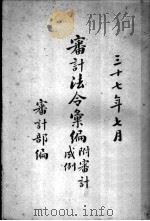 三十七年七月
審計法令彙編附審計
成例
審計部編